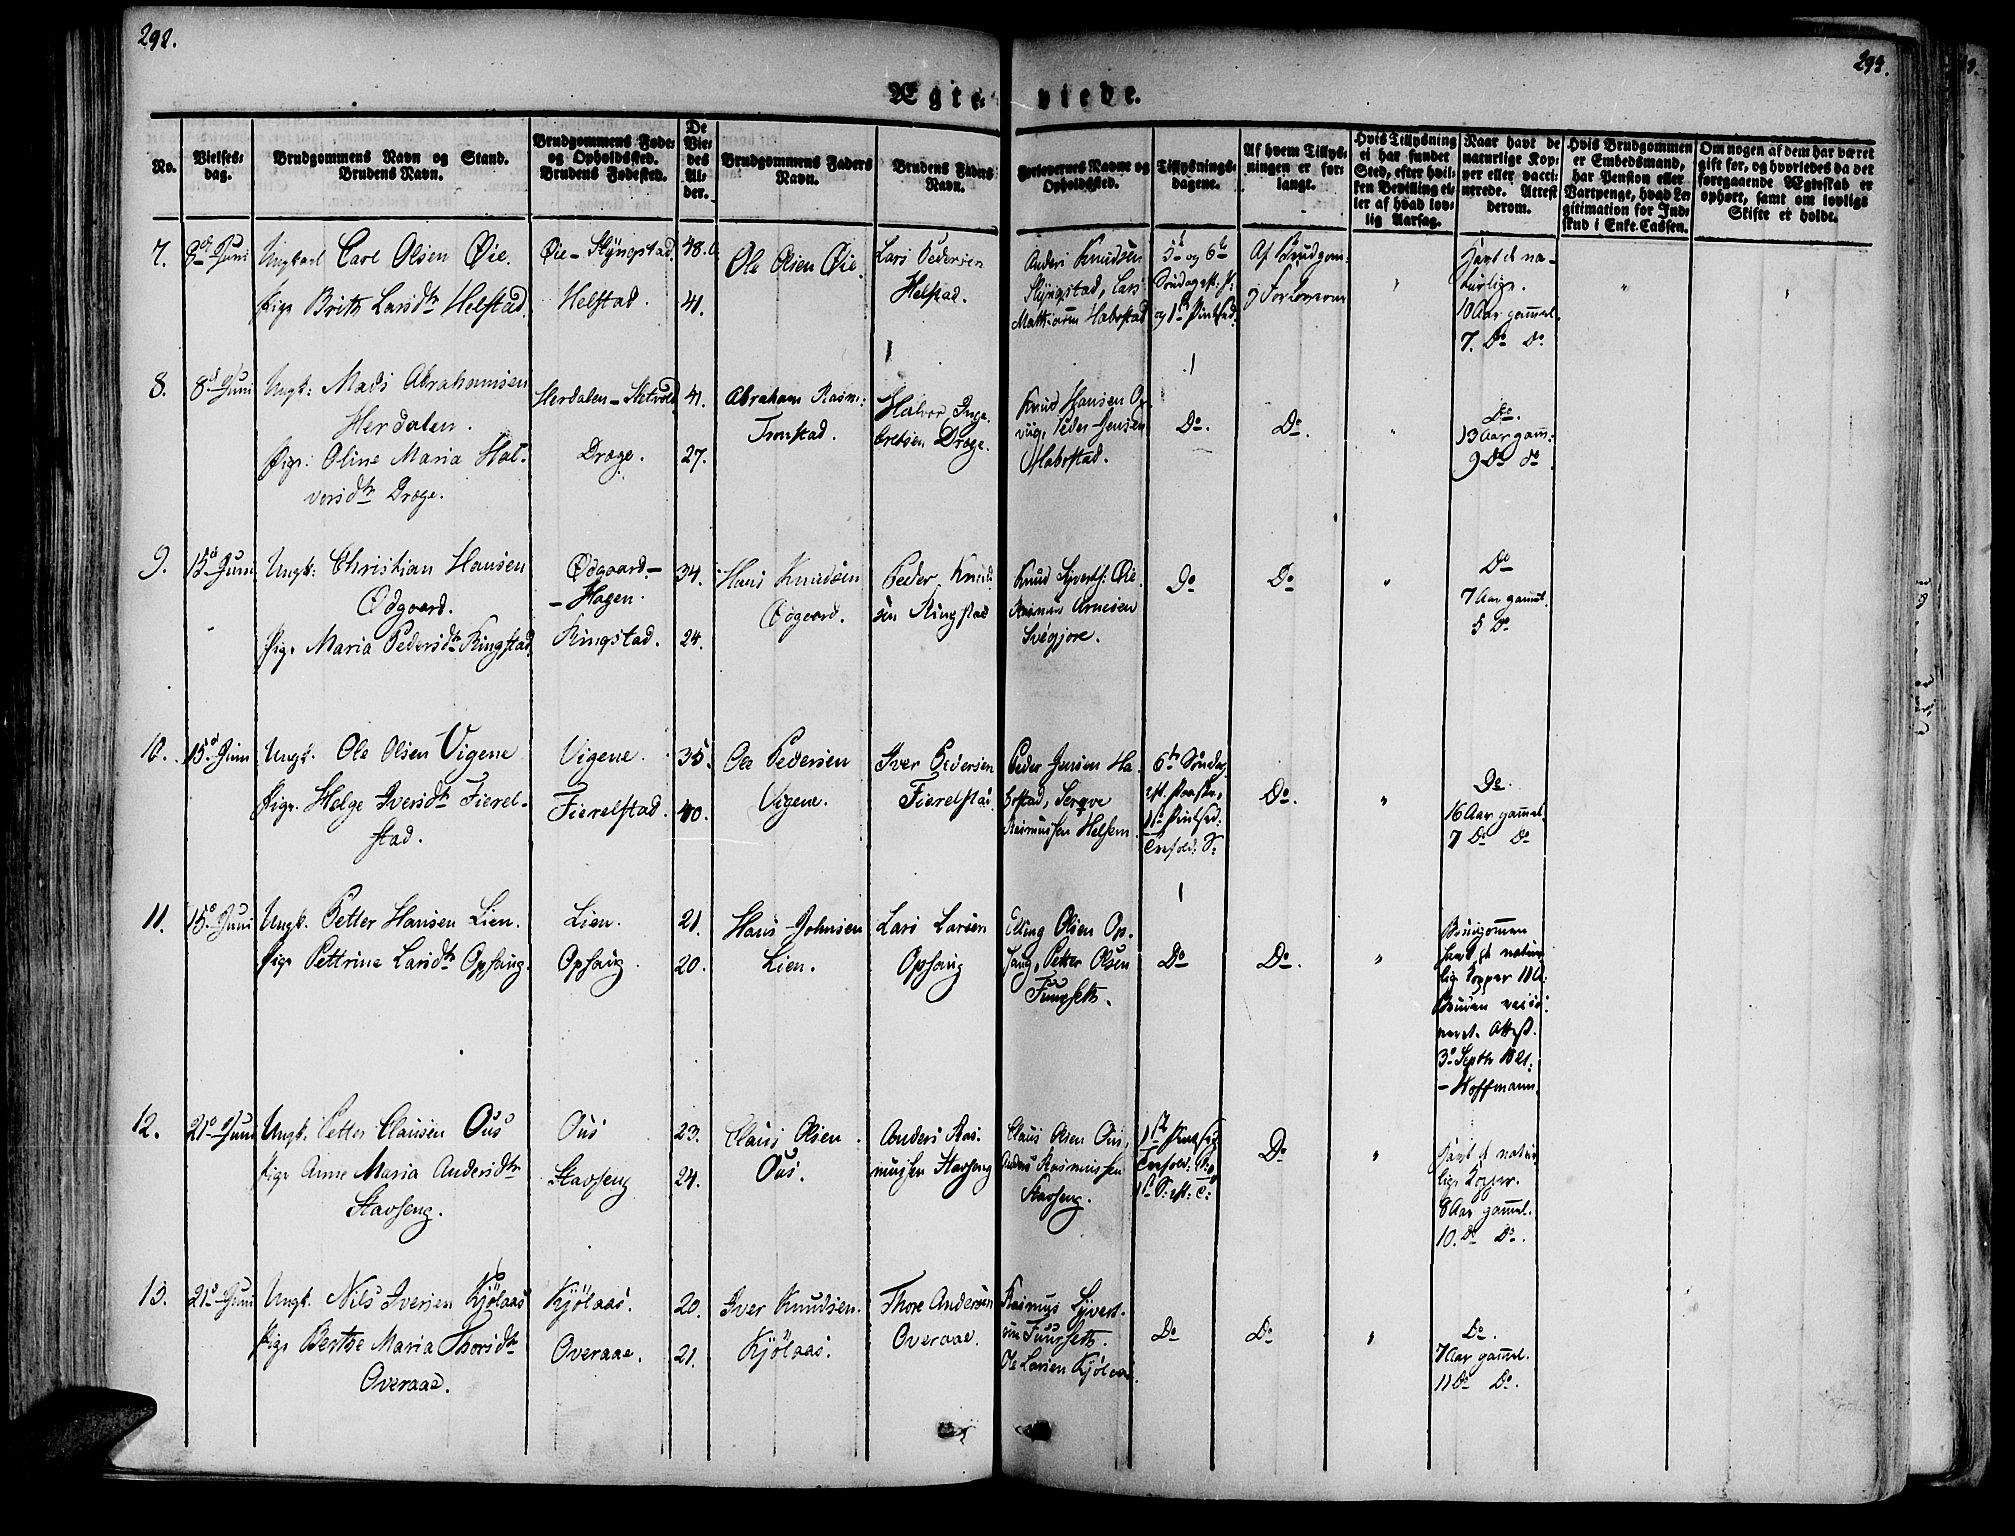 292.
293.
Ægte-
viede.
No.
Vielses-
dag.
Brudgommens Navn og Stand.
Brudens Navn.
Brudgommens Føde-
og Opholdssted.
Brudens Fødested.
De
Vie-
des
Al-
der.
Brudgommens Faders
Navn.
Brudens Faders
Navn.
Forlovernes Navne og
Opholdssted.
Tillysnings-
dagene.
Af hvem Tillys-
ningen er for-
langt.
Hvis Tillysning
ei har fundet
Sted, efter hvil-
ken Bevilling el-
ler af hvad lov-
lig Aarsag.
Naar havt de
naturlige Kop-
per eller vacci-
nerede. Attest
derom.
Hvis Brudgommen
er Embedsmand,
har Pension eller
Vartpenge, hvad Le-
gitimation for Ind-
skud i Enke-Cassen.
Om nogen af dem har været
gift før, og hvorledes da det
foregaaende Ægteskab er
ophørt, samt om lovligt
Skifte er holdt.
7.
8d Juni
Ungkarl Carl Olsen Øie.
Pige Brith Larsdtr Helstad.
Øie - Slyngstad.
Helstad.
48.
41.
Ole Olsen Øie.
Lars Pedersen
Helstad.
Anders Knudsen
Slyngstad, Lars
Mathiasen Habostad
5te og 6te
Søndag eft. P:
og 1ste Pintsed.
Af Brudgom:
og Forloverne
"
Havt d na-
turlige.
10 Aar gammel.
7. Do Do
"
8.
8d Juni
Ungk: Mads Abrahamsen
Herdalen.
Pige: Oline Maria Hal-
versdtr Drøge.
Herdalen - Stetvold
Drøge.
41.
27.
Abraham Rasm:
Tronstad.
Halvor Inge-
bretsen Drøge.
Knud Hansen Op-
viig, Peder Jensen
Habostad.
Do.
Do.
"
Do.
13 Aar gam:
9 Do do
9.
15d Juni
Ungk: Christian Hansen
Ødgaard.
Pige Maria Pedersdtr Ringstad.
Ødgaard -
- Hagen.
Ringstad.
34.
24.
Hans Knudsen
Ødgaard.
Peder Knud-
sen Ringstad
Knud Syverts: Øie.
Rasmus Arnesen
Svegjøre.
Do
Do
"
Do
7 Aar gammel.
5 Do
10.
15d Juni
Ungk. Ole Olsen Vigene
Pige. Helge Iversdtr Fierel-
stad.
Vigene.
Fierelstad.
35.
40.
Ole Pedersen
Vigene.
Iver Pedersen
Fierelstad.
Peder Jensen Ha-
bostad, Sergve
Rasmussen Helsem
6te Søndag
eft. Paaske,
1ste Pintsed:
Trefold: S:
Do.
"
Do.
16 Aar gammel.
7 Do Do
11.
15d Juni
Ungk. Petter Hansen Lien.
Pige Pettrine Larsdtr Ophaug.
Lien.
Ophaug.
21.
20.
Hans Johnsen
Lien.
Lars Larsen
Ophaug
Elling Olsen Op-
haug, Petter Olsen
Fuursetth.
Do
Do.
"
Brudgommen
havt d natur-
lige Kopper 11 A:
Bruden vacci-
neret. Attest.
3d Septbr 1821.
- Hoffmann.
12.
21d Juni
Ungk. Petter Clausen Ous
Pige Anne Maria Andersdtr
Stavseng.
Ous
Stavseng
23.
24.
Claus Olsen
Ous.
Anders Ras-
mussen Stavseng
Claus Olsen Ous,
Anders Rasmussen
Stavseng.
1ste Pintsed
Trefold. S:
1ste S: eft: T:
Do
"
Havt d natur-
lige Kopper.
8 Aar gammel.
10. Do Do.
13.
21d Juni
Ungk. Nils Iversen Kjølaas
Pige Berthe Maria Thorsdtr
Overaae.
Kjølaas.
Overaae.
20.
21.
Iver Knudsen
Kjølaas.
Thore Andersen
Overaae.
Rasmus Syvert-
sen Fuursetth.
Ole Larsen Kjølaas
Do
Do
"
Do.
7 Aar gammel.
11 Do Do.